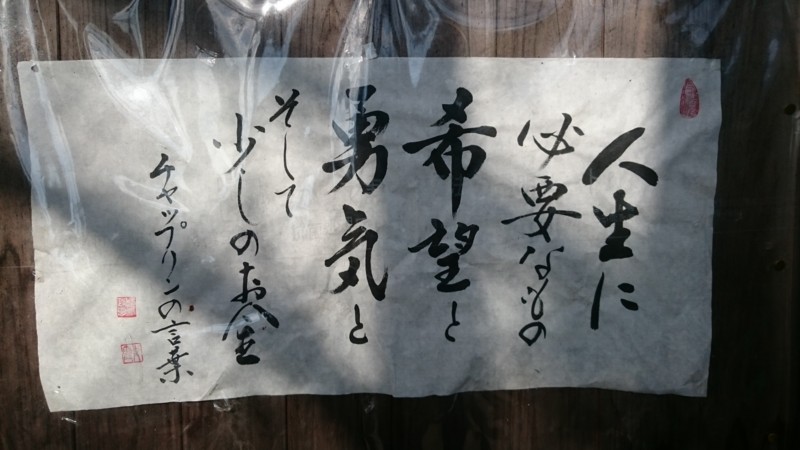 人生に
必要なもの
希望と
勇気と
そして
少しのお金
チャップリンの言葉